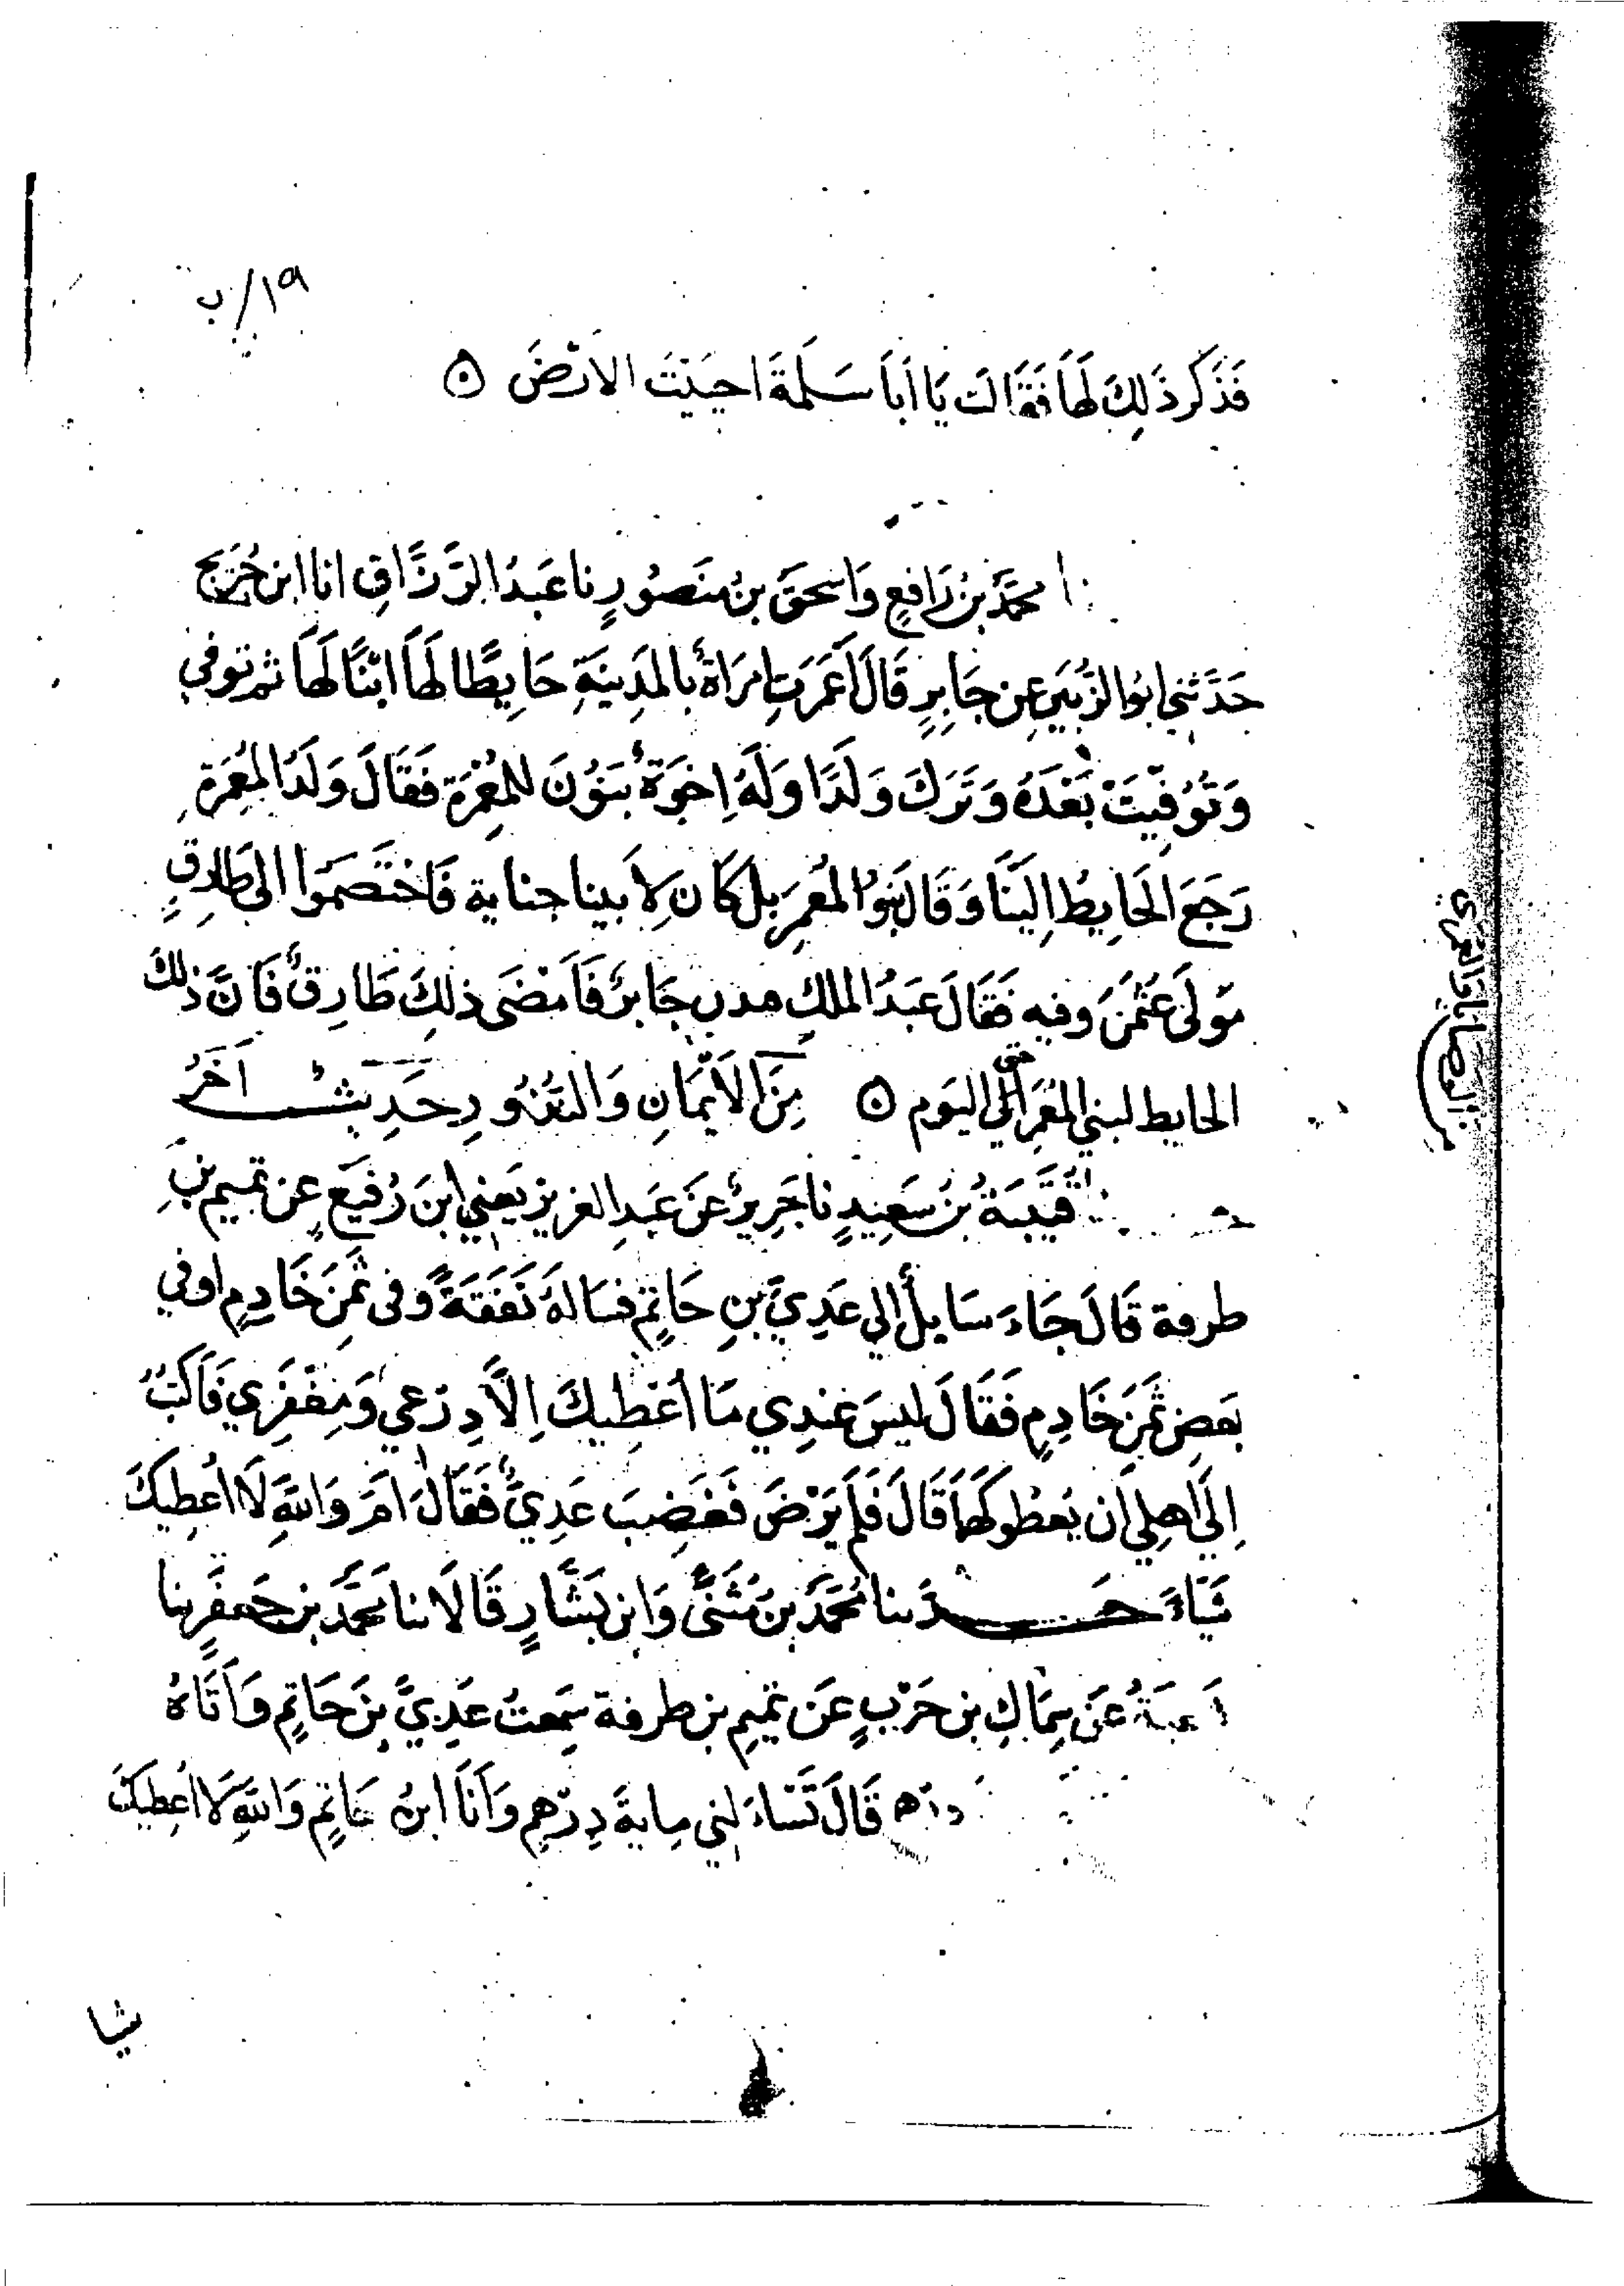 ١٩/ب
فَذَكَر ذَلِكَ لَهَا فَقَالَت يَا اَبَا سَلَمَةَ احيَيْتَ الاَرْضَ ه
محمَّد بن رَافِعٍ وَاسحَقَ بنُ مَنصُورٍ نا عَبدُ الرَّزَّاقِ انا ابن جُرَيج
حَدَّثني ابوُ الزُّبَيرِ عن جَابِرٍ قَالَ اَعْمَرَت اِمرَاَةٌ بالمَدِينَةِ حَايِطًا لَهَا ابْنًا لَهَا ثم توفي
وَتُوُفّيَتْ بَعْدَهُ وَتَرَكَ وَلَدًا وَلَهُ اِخوَةٌ بَنوُنَ للمُعْمِرَة فَقَالَ وَلَدُ المُعْمِرَةِ
رَجَعَ الحَايِطُ اِلَيْنَا وَقَالَ بَنوُا المُعْمَرِ بل كَانَ لاَبينا حياته فَاختَصَمَوُا الى طَارِقٍ
مَوْلَى عُثْمٰنَ وفيه فَقَالَ عَبدُ الملك صدق جَابِرٌ فَاَمْضَى ذلِكَ طَارِقٌ فَاِنَّ ذلك
الحايط لبني المُعْمَر حتى الي اليَوم ه مِنَ الاَيْمَانِ وَالنُّذُورِ حَدِيث اٰخَرُ
قُتَيبَةُ بنُ سَعِيدٍ نا جَرِيرٌ عَن عَبدِ العَزيز يَعني ابنَ رُفَيعٍ عَن تميم بنِ
طرفة قَالَ جَاءَ سَايِلٌ الي عَدِيِّ بنِ حَاتِمٍ فسَالَهُ نَفَقَةً وفى ثَمَنِ خَادِمٍ اوفي
بَعضِ ثَمَنِ خَادِمٍ فَقَالَ ليسَ عِنْدِي مَا اُعْطِيكَ اِلاَّ دِرْعِي وَمِغْفَرِي فَاَكْتُبُ
اِلَى اَهلي اَن يُعطوكهَا قَالَ فَلَم يَرْضَ فَغَضِبَ عَدِيٌّ فَقَالَ اَمَ وَاللهِ لَا اُعطِيكَ
شَيْاً حَدَّثنا مُحَمَّد بنُ مُثَنَّى وَابن بَشَّارٍ قَالَا نا مُحَمَّد بن جَعفَرٍ نا
شعبَةُ عَن سِمَاكِ بن حَرْبٍ عَن تميم بن طرفة سَمِعتُ عَدِيَّ بنَ حَاتِمٍ وَاَتَاهُ
درهم قَالَ تَسْاَلني مِايةَ دِرْهمٍ وَاَنَا ابنُ حَاتِمٍ وَاللهِ لَا اُعطِيكَ
شيا